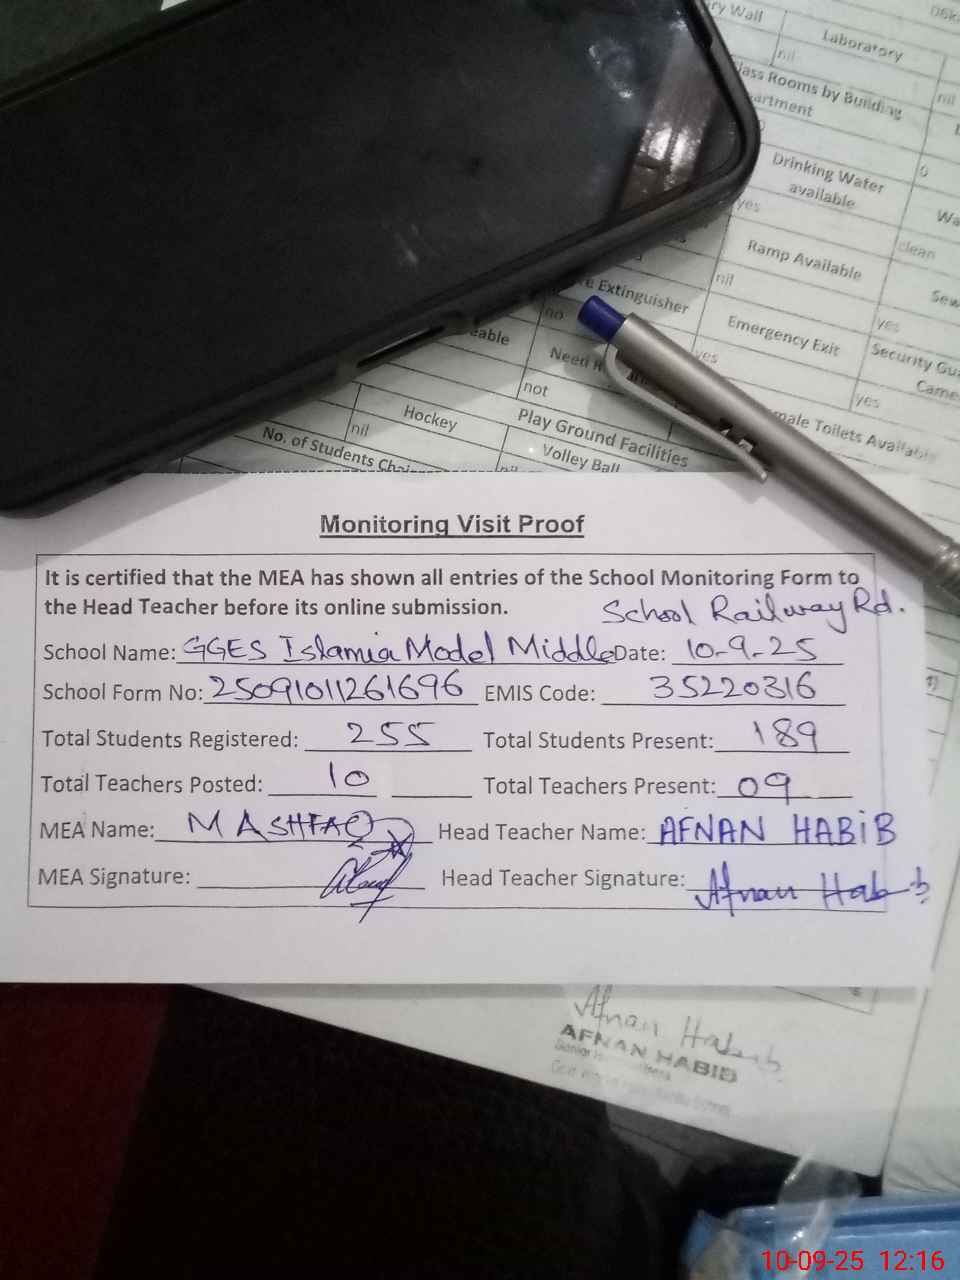 ry Wall
Laboratory
nil
nil
lass Rooms by Building
artment
0
Drinking Water
available
yes
clean
Ramp Available
nil
Extinguisher
no
Emergency Exit
yes
yes
Security Gu
Came
yes
eable
Need
not
Hockey
nil
Play Ground Facilities
Volley Ball
male Toilets Available
No. of Students Chai
Monitoring Visit Proof
It is certified that the MEA has shown all entries of the School Monitoring Form to
the Head Teacher before its online submission. School Railway Rd.
School Name: GGES Islamia Model Middle Date: 10-9-25
School Form No: 25091011261696 EMIS Code: 35220316
Total Students Registered: 255 Total Students Present: 189
Total Teachers Posted: 10 Total Teachers Present: 09
MEA Name: M ASHFAQ Head Teacher Name: AFNAN HABiB
MEA Signature: Head Teacher Signature: Afnan Habib
Afnan Habib
AFNAN HABIB
10-09-25 12:16